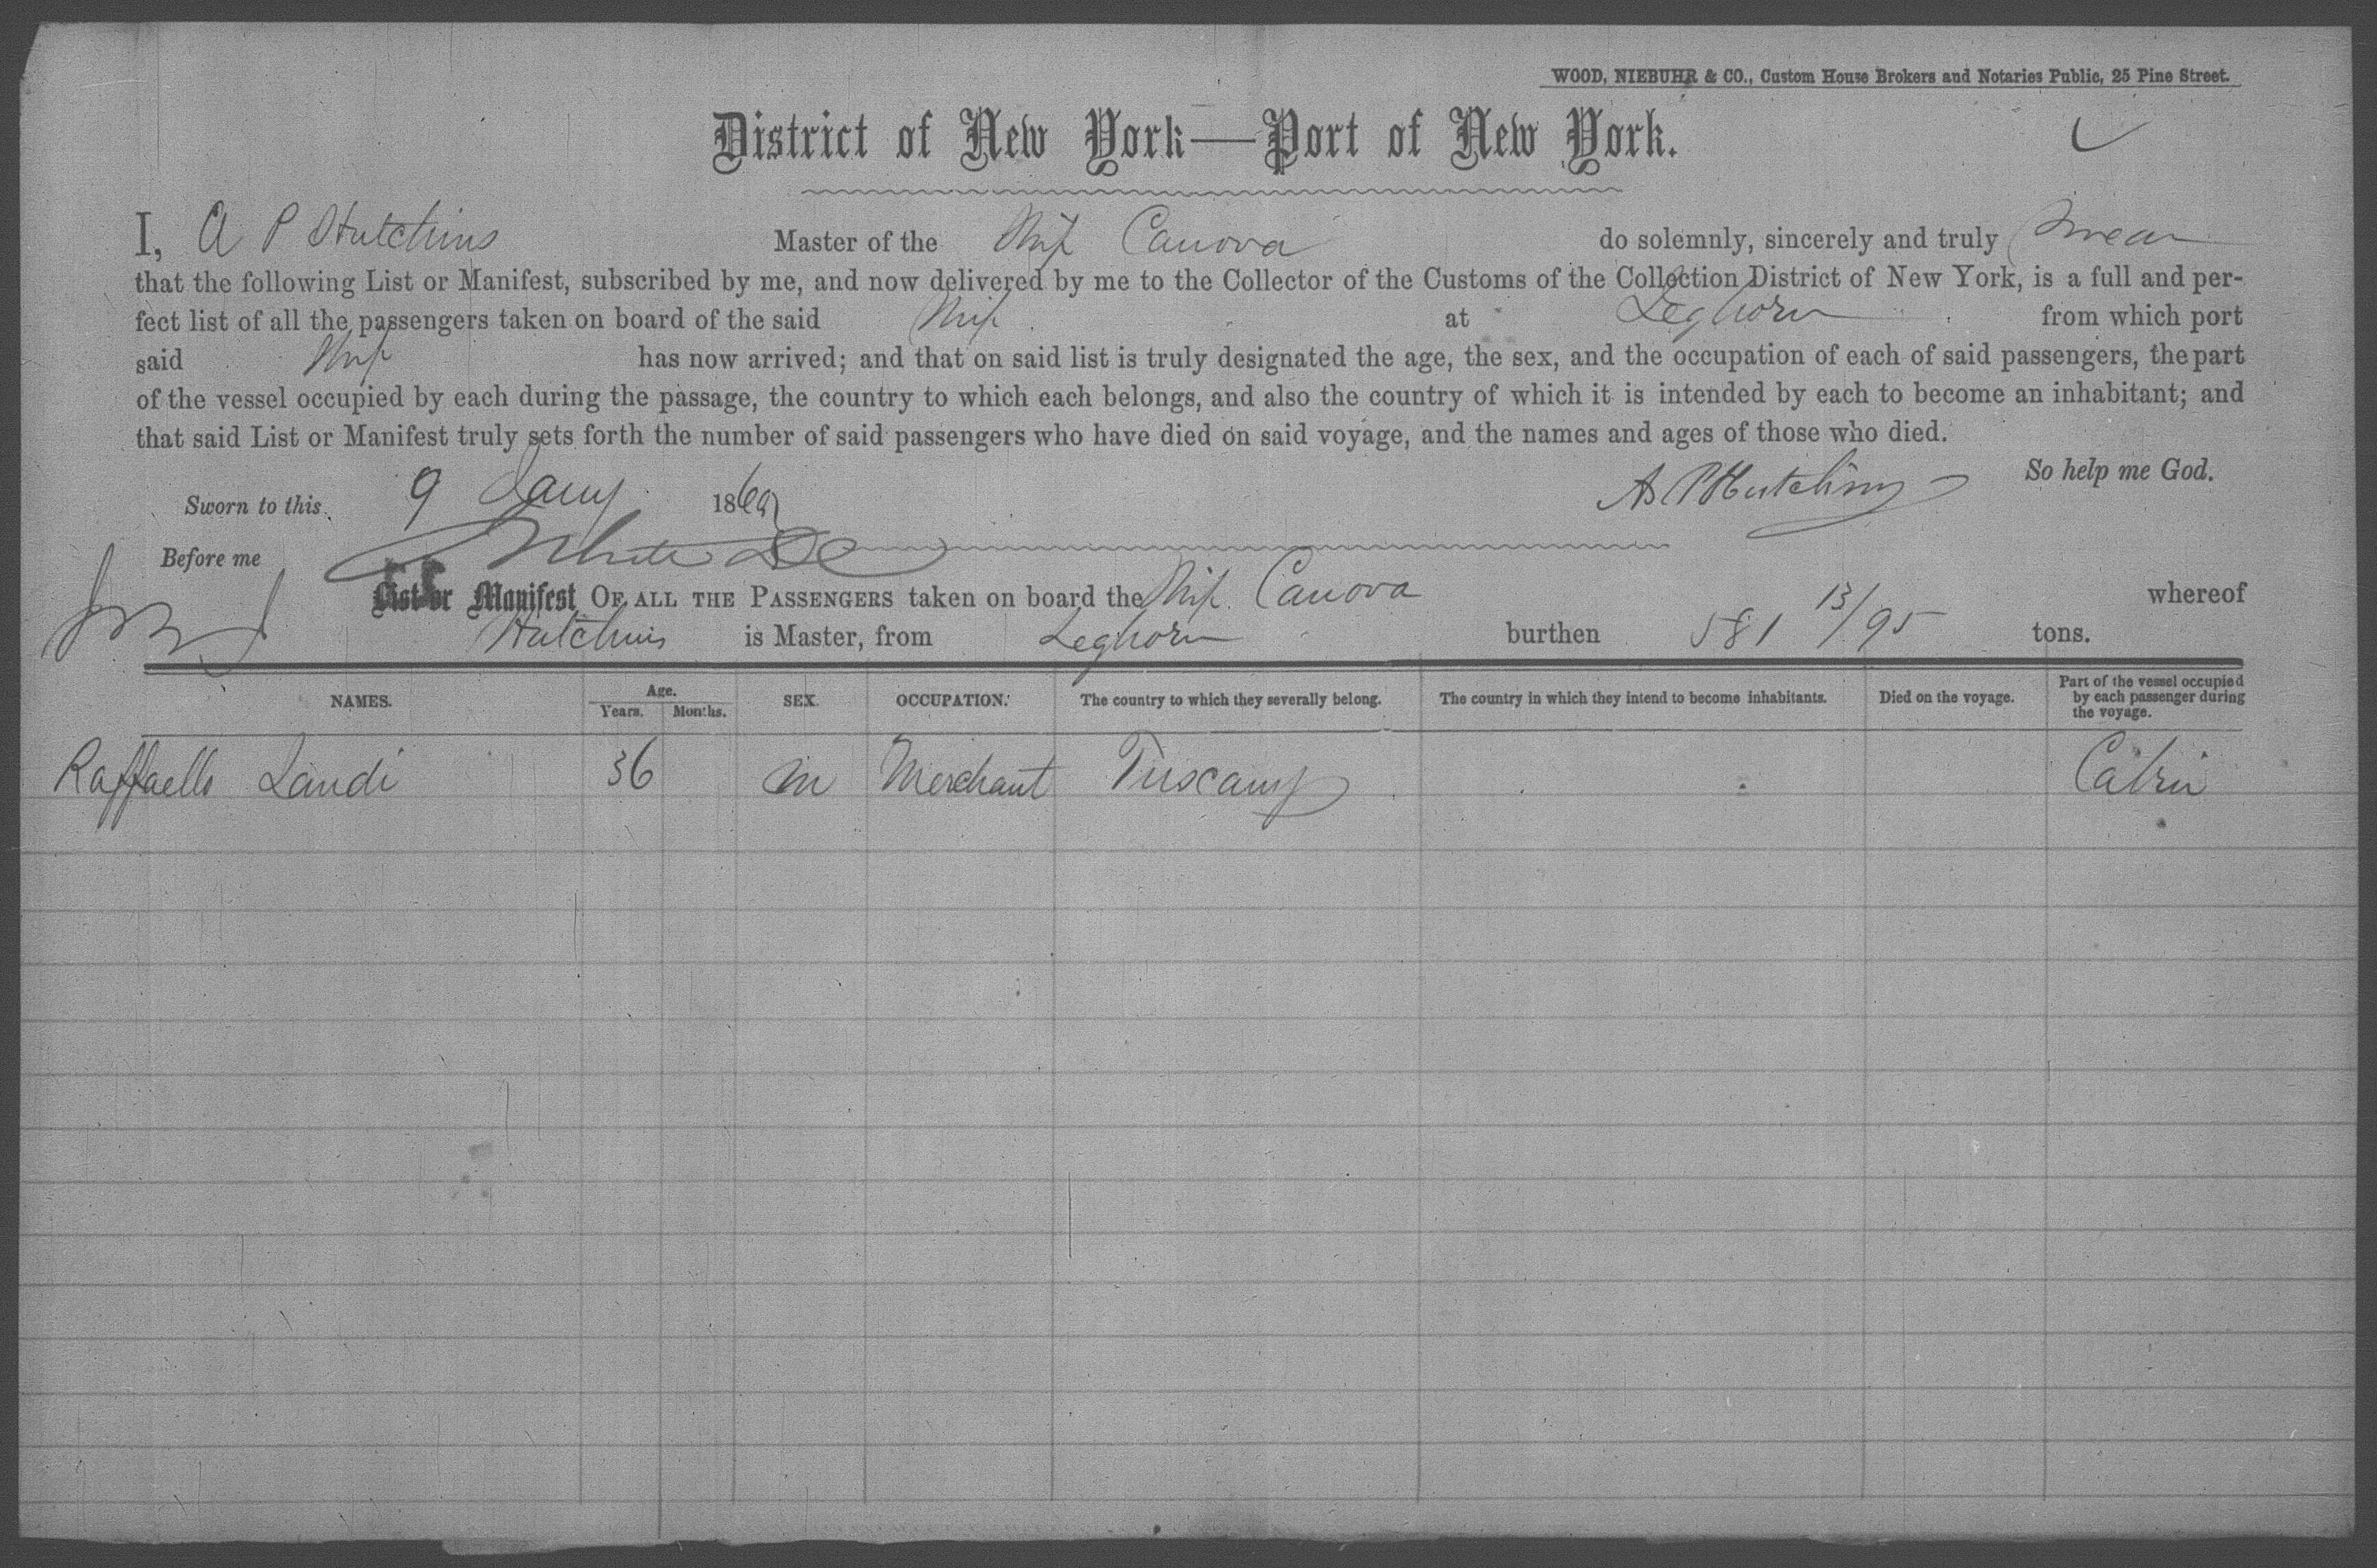 WOOD, NIEBUHR & CO., Custom House Brokers and Notaries Public, 25 Pine Street.
District of New York—Port of New York.
I, A P Hutchins Master of the Ship Canova do solemnly, sincerely and truly Swear
that the following List or Manifest, subscribed by me, and now delivered by me to the Collector of the Customs of the Collection District of New York, is a full and per-
fect list of all the passengers taken on board of the said Ship at Leghorn from which port
said Ship has now arrived; and that on said list is truly designated the age, the sex, and the occupation of each of said passengers, the part
of the vessel occupied by each during the passage, the country to which each belongs, and also the country of which it is intended by each to become an inhabitant; and
that said List or Manifest truly sets forth the number of said passengers who have died on said voyage, and the names and ages of those who died.
So help me God.
Sworn to this 9 Jany 186 A P Hutchins
Before me
List or Manifest OF ALL THE PASSENGERS taken on board the Ship Canova whereof
Hutchins is Master, from Leghorn burthen 581 13/95 tons.
NAMES. Age. Years. Months. SEX. OCCUPATION. The country to which they severally belong. The country in which they intend to become inhabitants. Died on the voyage. Part of the vessel occupied by each passenger during the voyage.
Raffaello Landi 36 m Merchant Tuscany Cabin